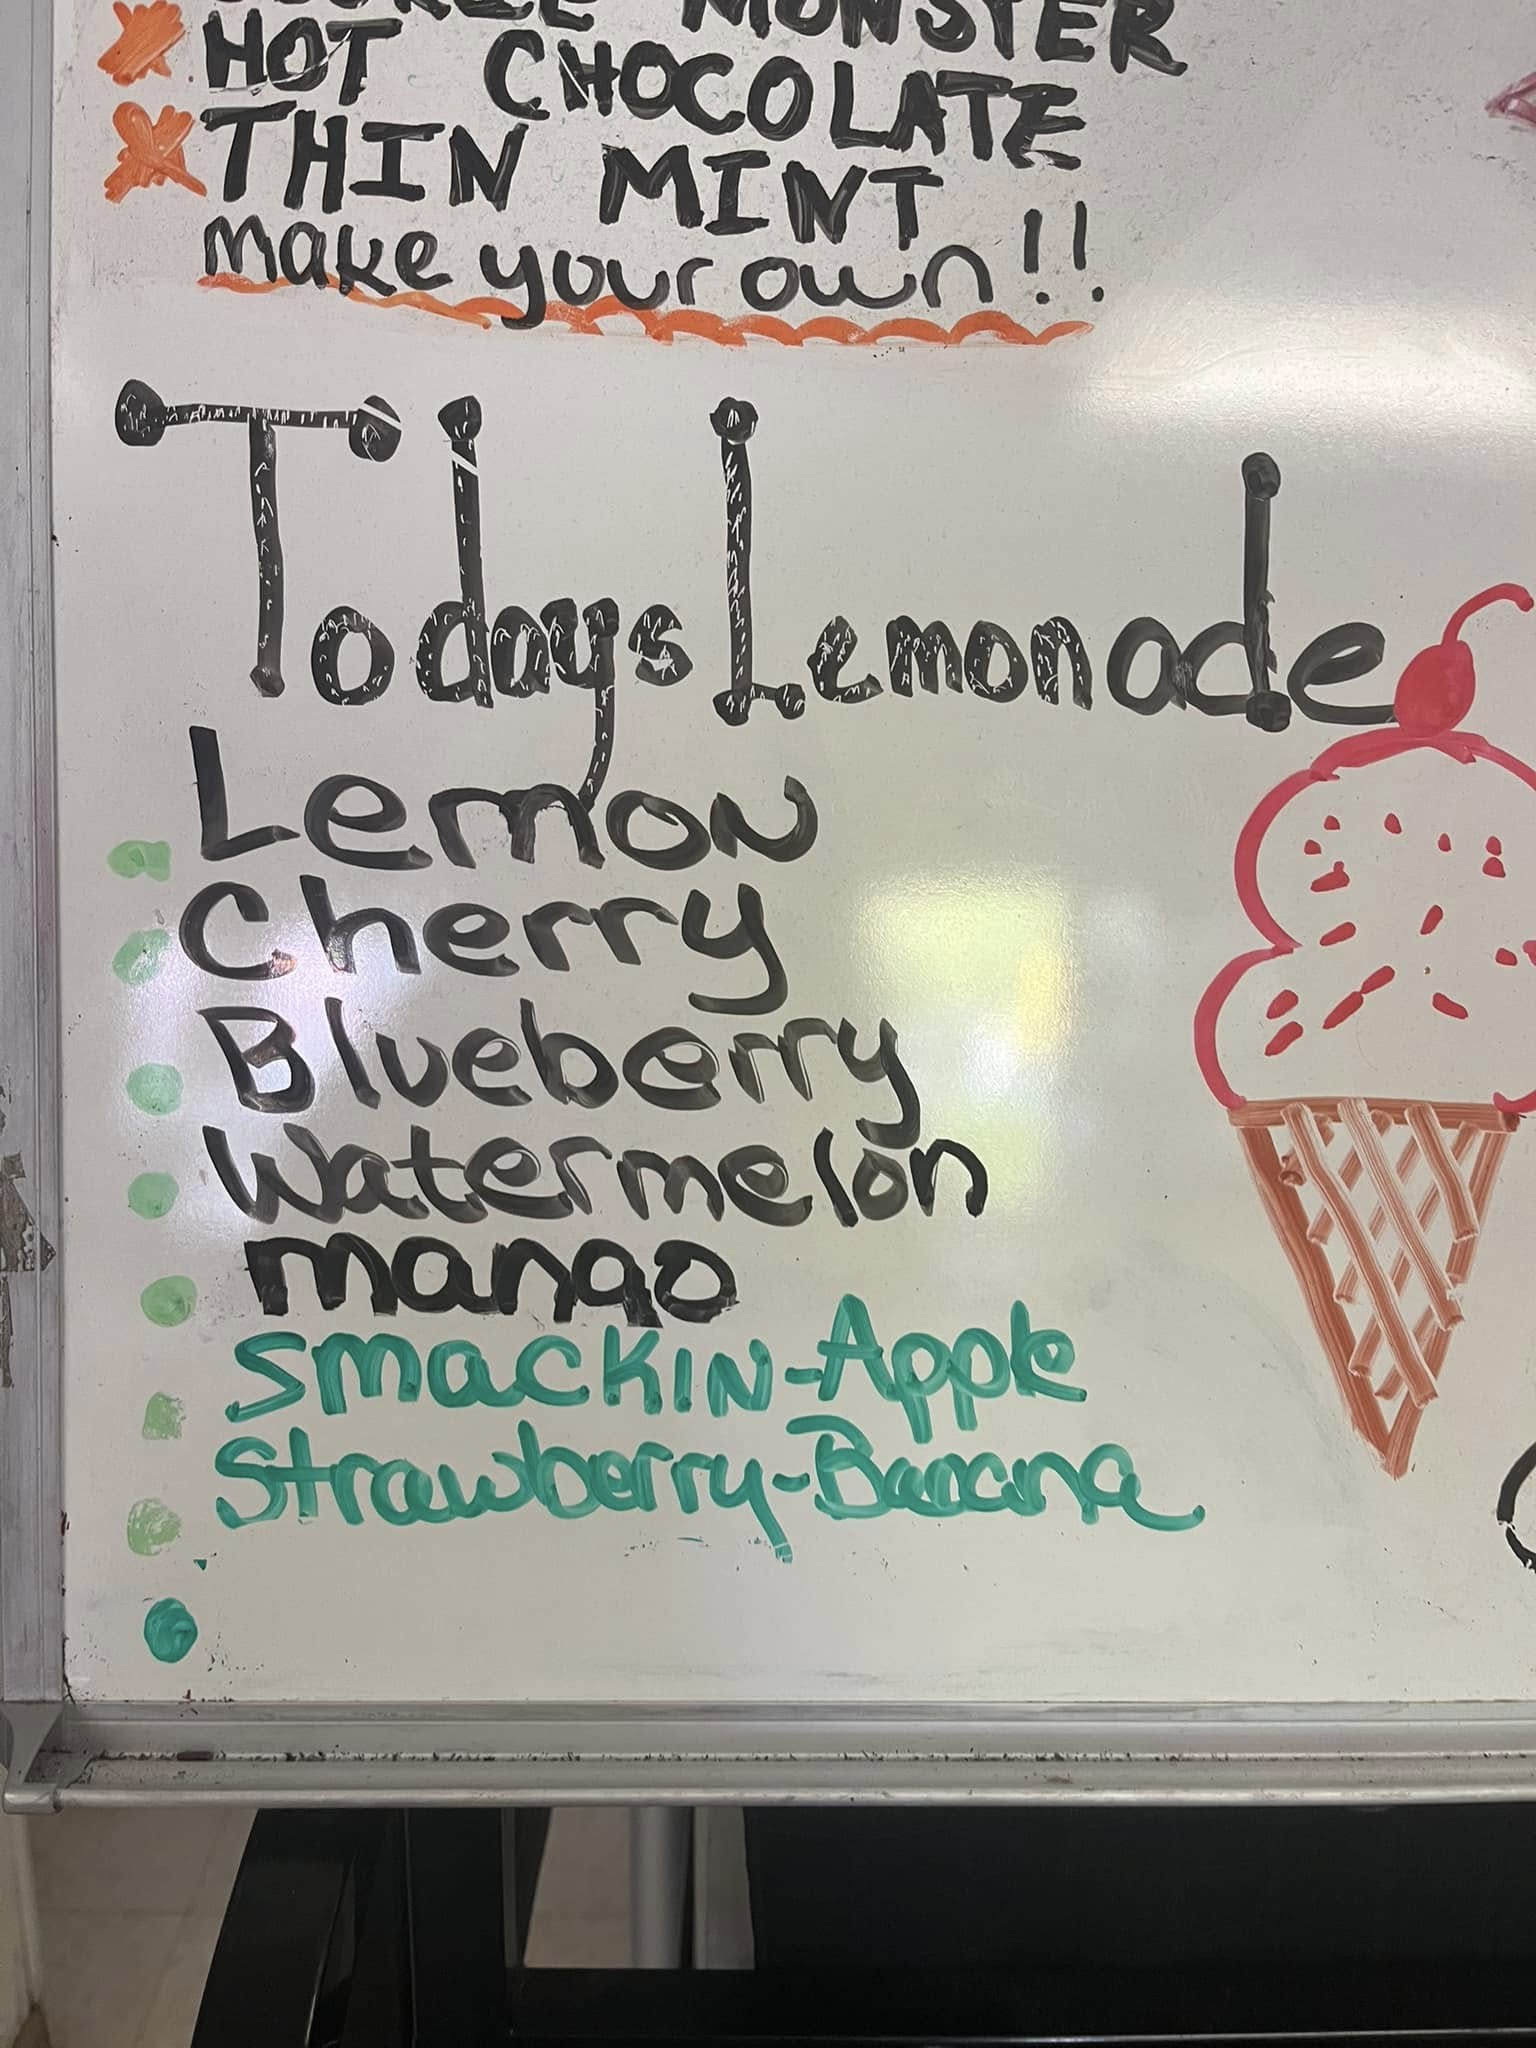 MONSTER
HOT CHOCOLATE
THIN MINT
make your own!!
Todays Lemonade
Lemon
Cherry
Blueberry
Watermelon
mango
SmackIN-Apple
Strawberry-Banana